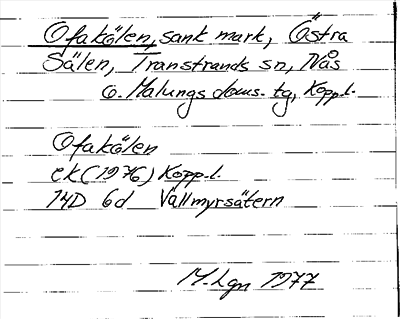 Ofakölen, sank mark, Östra
Sälen, Transtrands sn, Nås
o. Malungs doms. tg, Kopp.l.
Ofakölen
ek (1976) Kopp.l.
14D 6d Vallmyrsätern
M-Lgn 1977